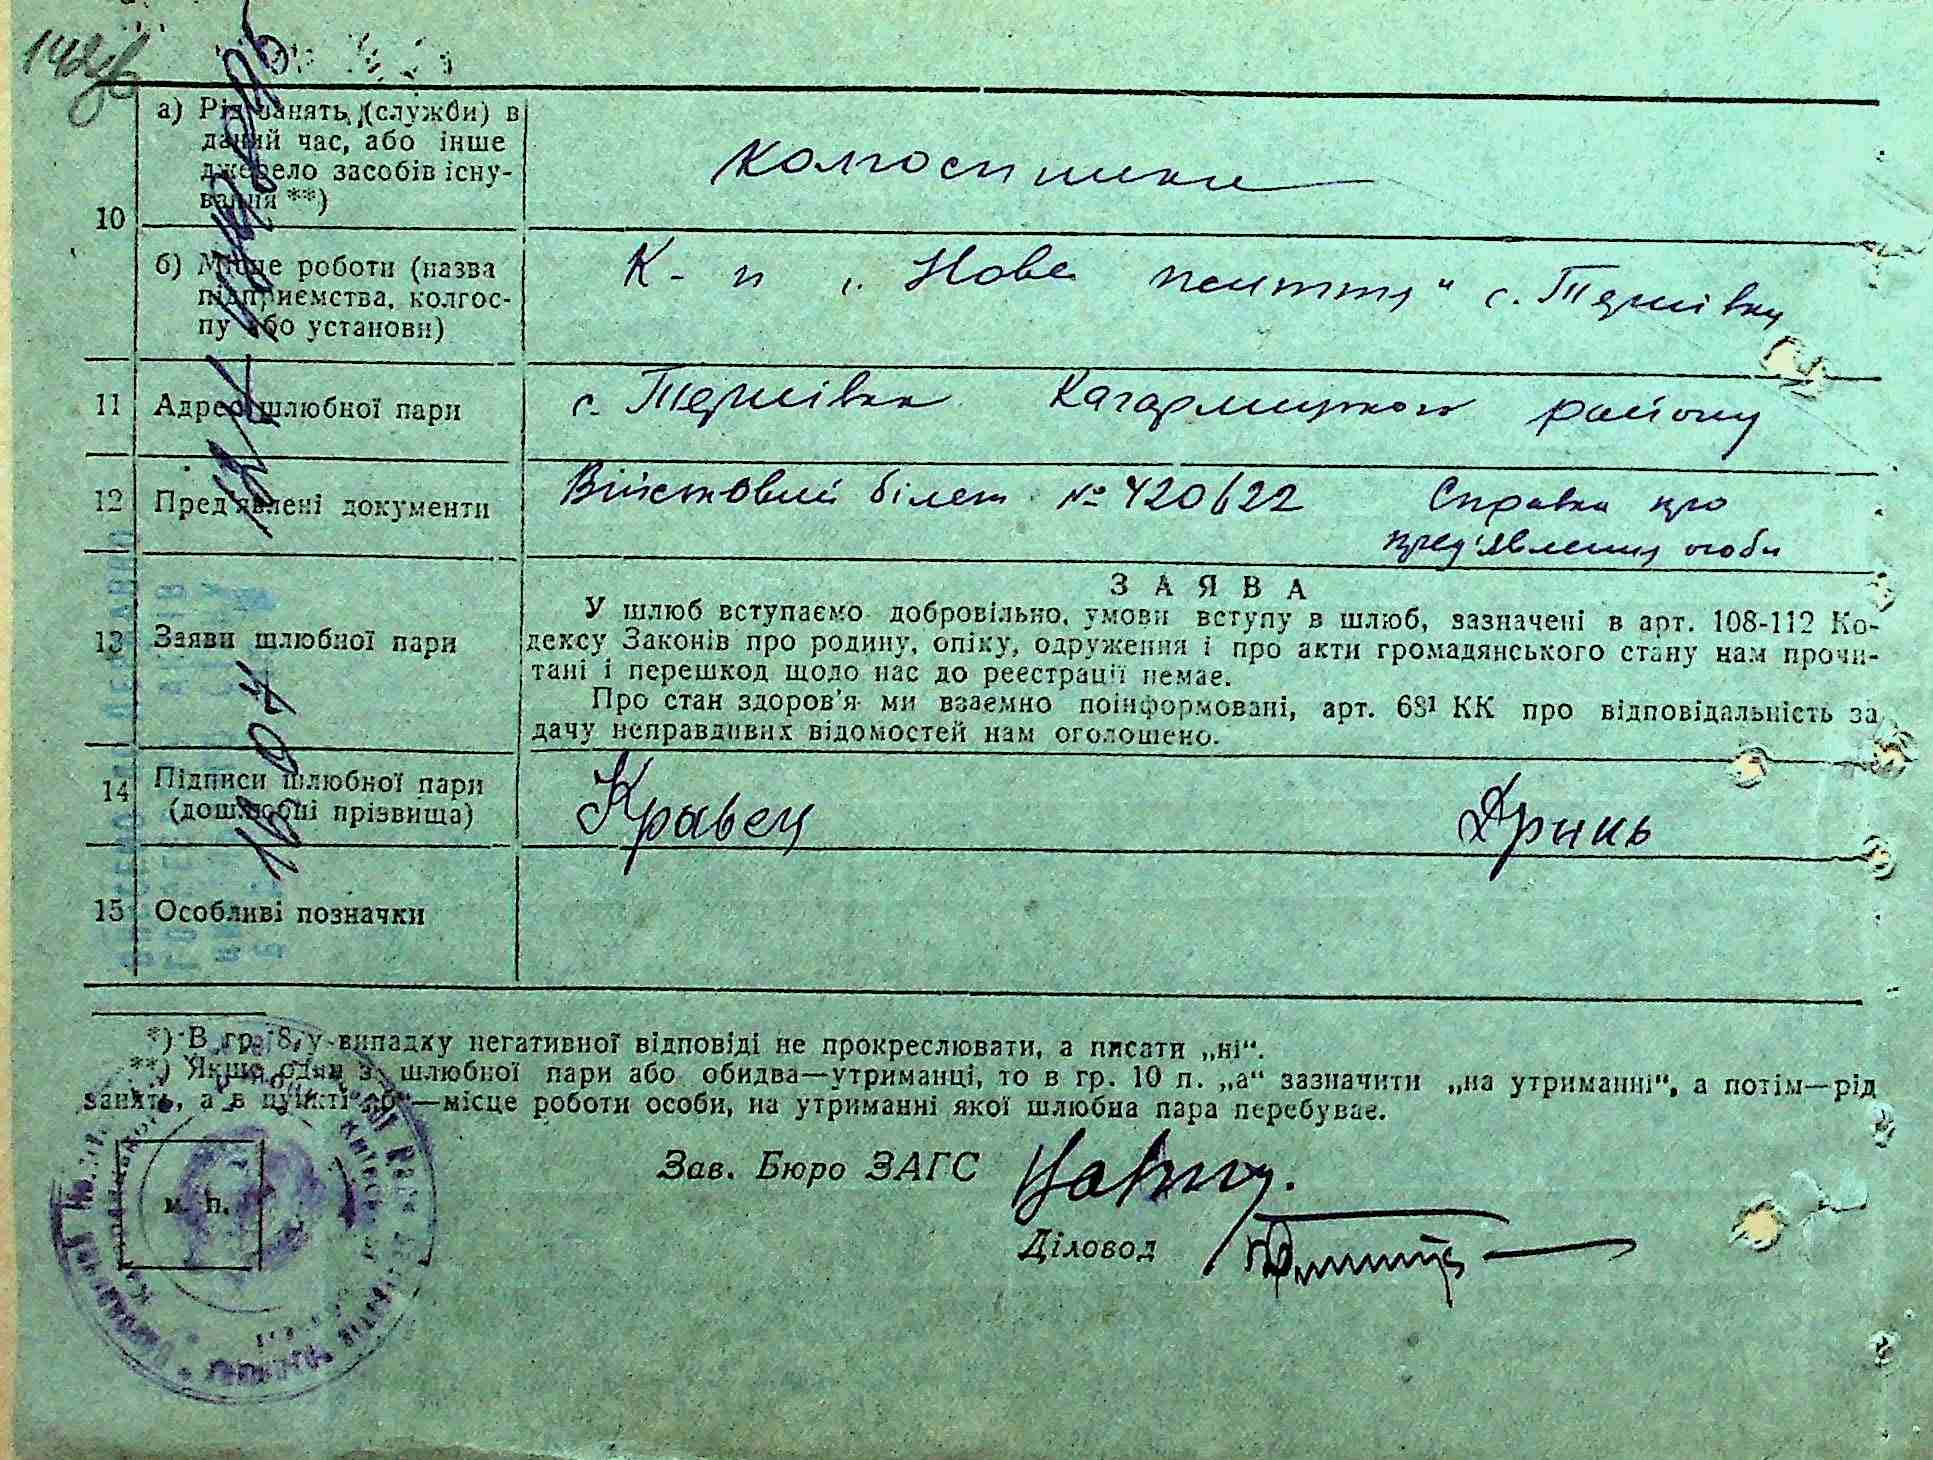 142
10
а) Рід занять (служби) в
даний час, або інше
джерело засобів існу-
вання **)
колгоспники
б) Місце роботи (назва
підприємства, колгос-
пу або установи)
К-п „Нове життя" с. Тернівка
11 Адрес шлюбної пари
с. Тернівка Кагарлицького району
12 Пред'явлені документи
Військовий білет № 420622 Справка про
пред'явлення особи
З А Я В А
13 Заяви шлюбної пари
У шлюб вступаємо добровільно, умови вступу в шлюб, зазначені в арт. 108-112 Ко-
дексу Законів про родину, опіку, одруження і про акти громадянського стану нам прочи-
тані і перешкод щодо нас до реєстрації немає.
Про стан здоров'я ми взаємно поінформовані, арт. 68¹ КК про відповідальність за
дачу неправдивих відомостей нам оголошено.
14 Підписи шлюбної пари
(дошлюбні прізвища)
Кравец Дринь
15 Особливі позначки
*) В гр. 8 у випадку негативної відповіді не прокреслювати, а писати „ні".
**) Якщо один з шлюбної пари або обидва—утриманці, то в гр. 10 п. „а" зазначити „на утриманні", а потім—рід
занять, а в пункті „б"—місце роботи особи, на утриманні якої шлюбна пара перебуває.
Зав. Бюро ЗАГС
м. п.
Діловод